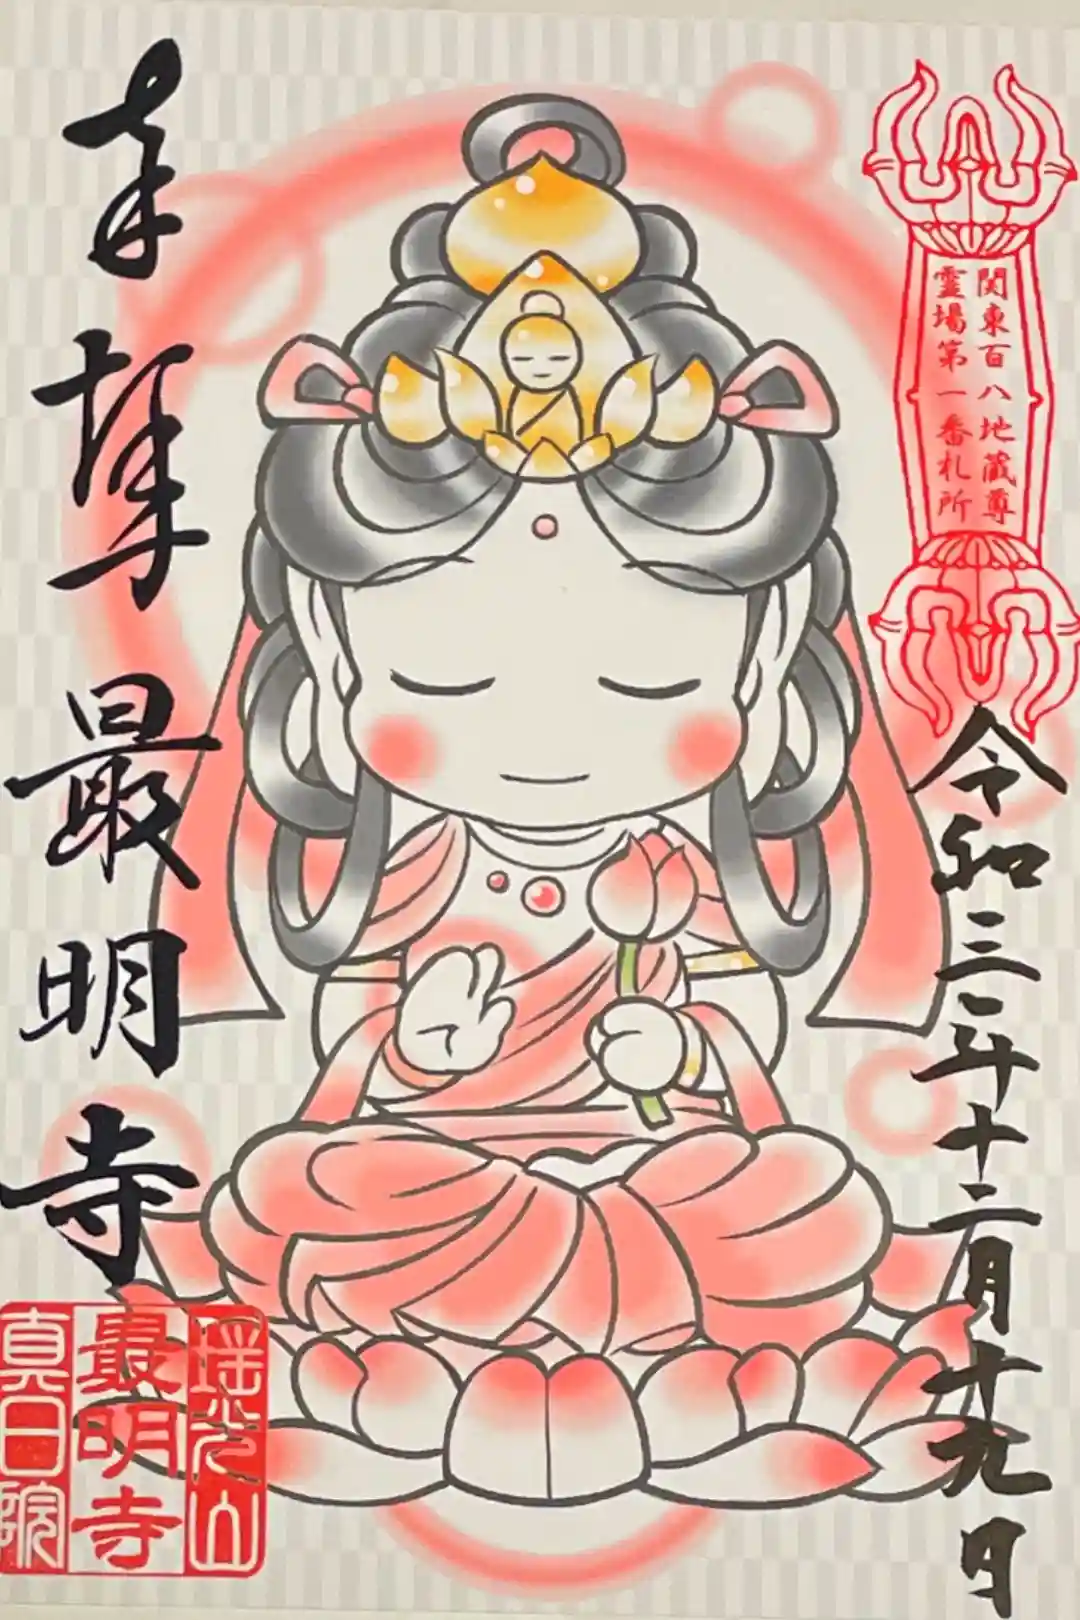 関東百八地蔵尊
霊場第一番札所
令和三年十二月十九日
奉拝 最明寺
瑶光山
最明寺
真日院